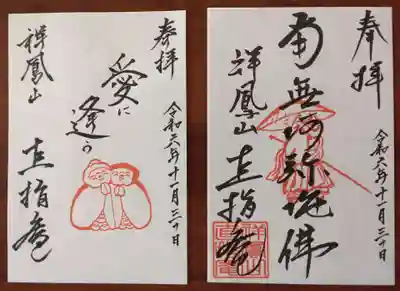 奉拝
愛に
逢う
令和六年十一月三十日
祥鳳山
直指庵
奉拝
南無阿弥陀佛
令和六年十一月三十日
祥鳳山
直指庵